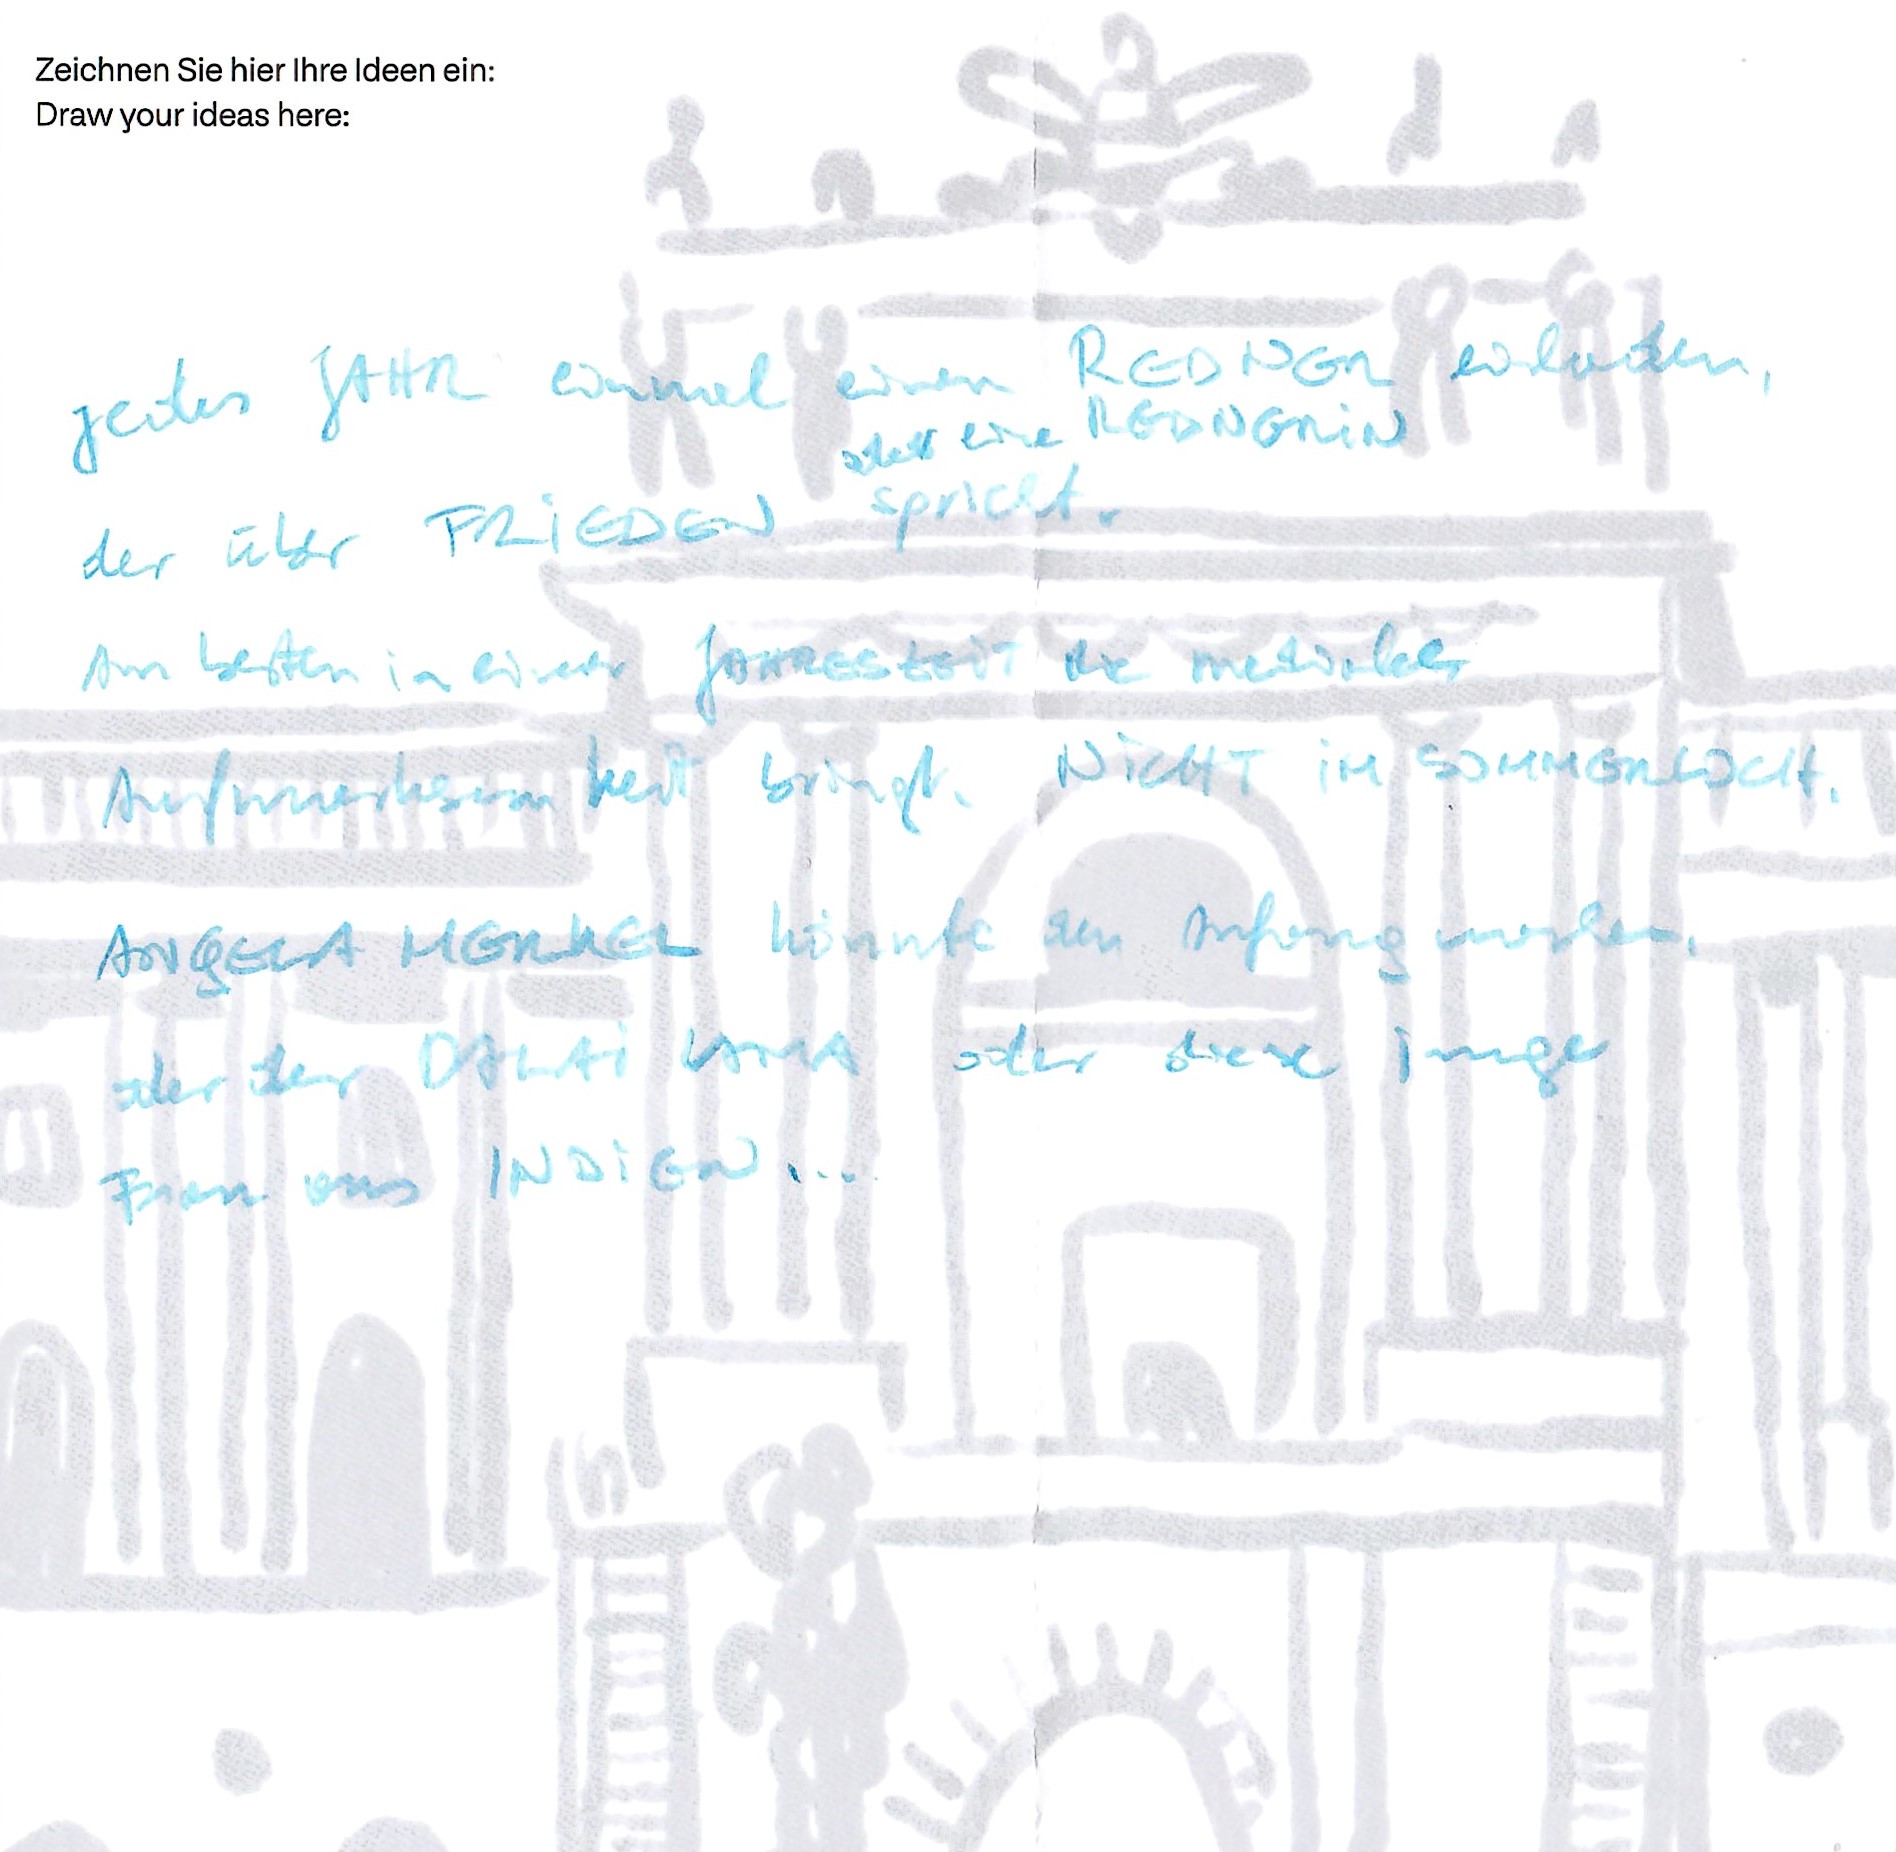 Zeichnen Sie hier Ihre Ideen ein:
Draw your ideas here:
jedes JAHR einmal einen REDNER einladen,
oder eine REDNERIN
der über FRIEDEN spricht.
Am besten in einer JAHRESZEIT die mediale
Aufmerksamkeit bringt. NICHT IM SOMMERLOCH.
ANGELA MERKEL könnte den Anfang machen,
oder der DALAI LAMA oder diese junge
Frau aus INDIEN...